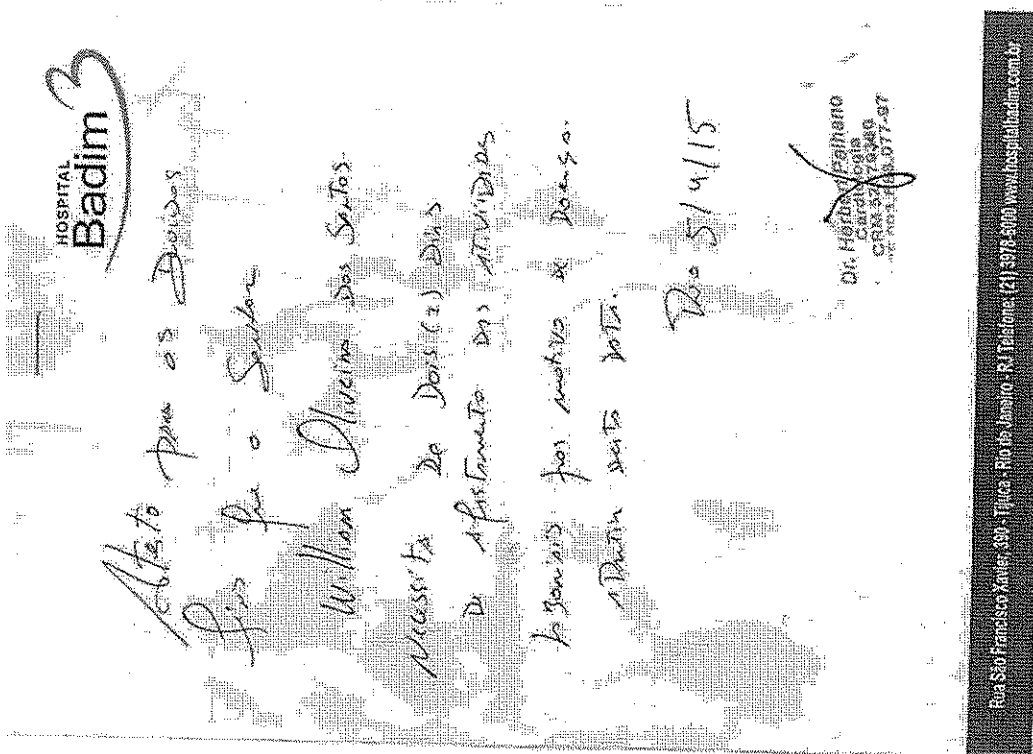 HOSPITAL
Badim
Atesto para os Devidos
fins que o Senhor
William Oliveira Dos Santos
Necessita De Dois (2) Dias
De Afastamento Das Atividades
laborais por motivo de Doença.
A Partir desta Data.
Rio 5/4/15
Dr. Palhano
Cardiologia
CRM
Rua São Francisco Xavier, 390 - Tijuca - Rio de Janeiro - RJ Telefone: (21) 3978-5000 www.hospitalbadim.com.br